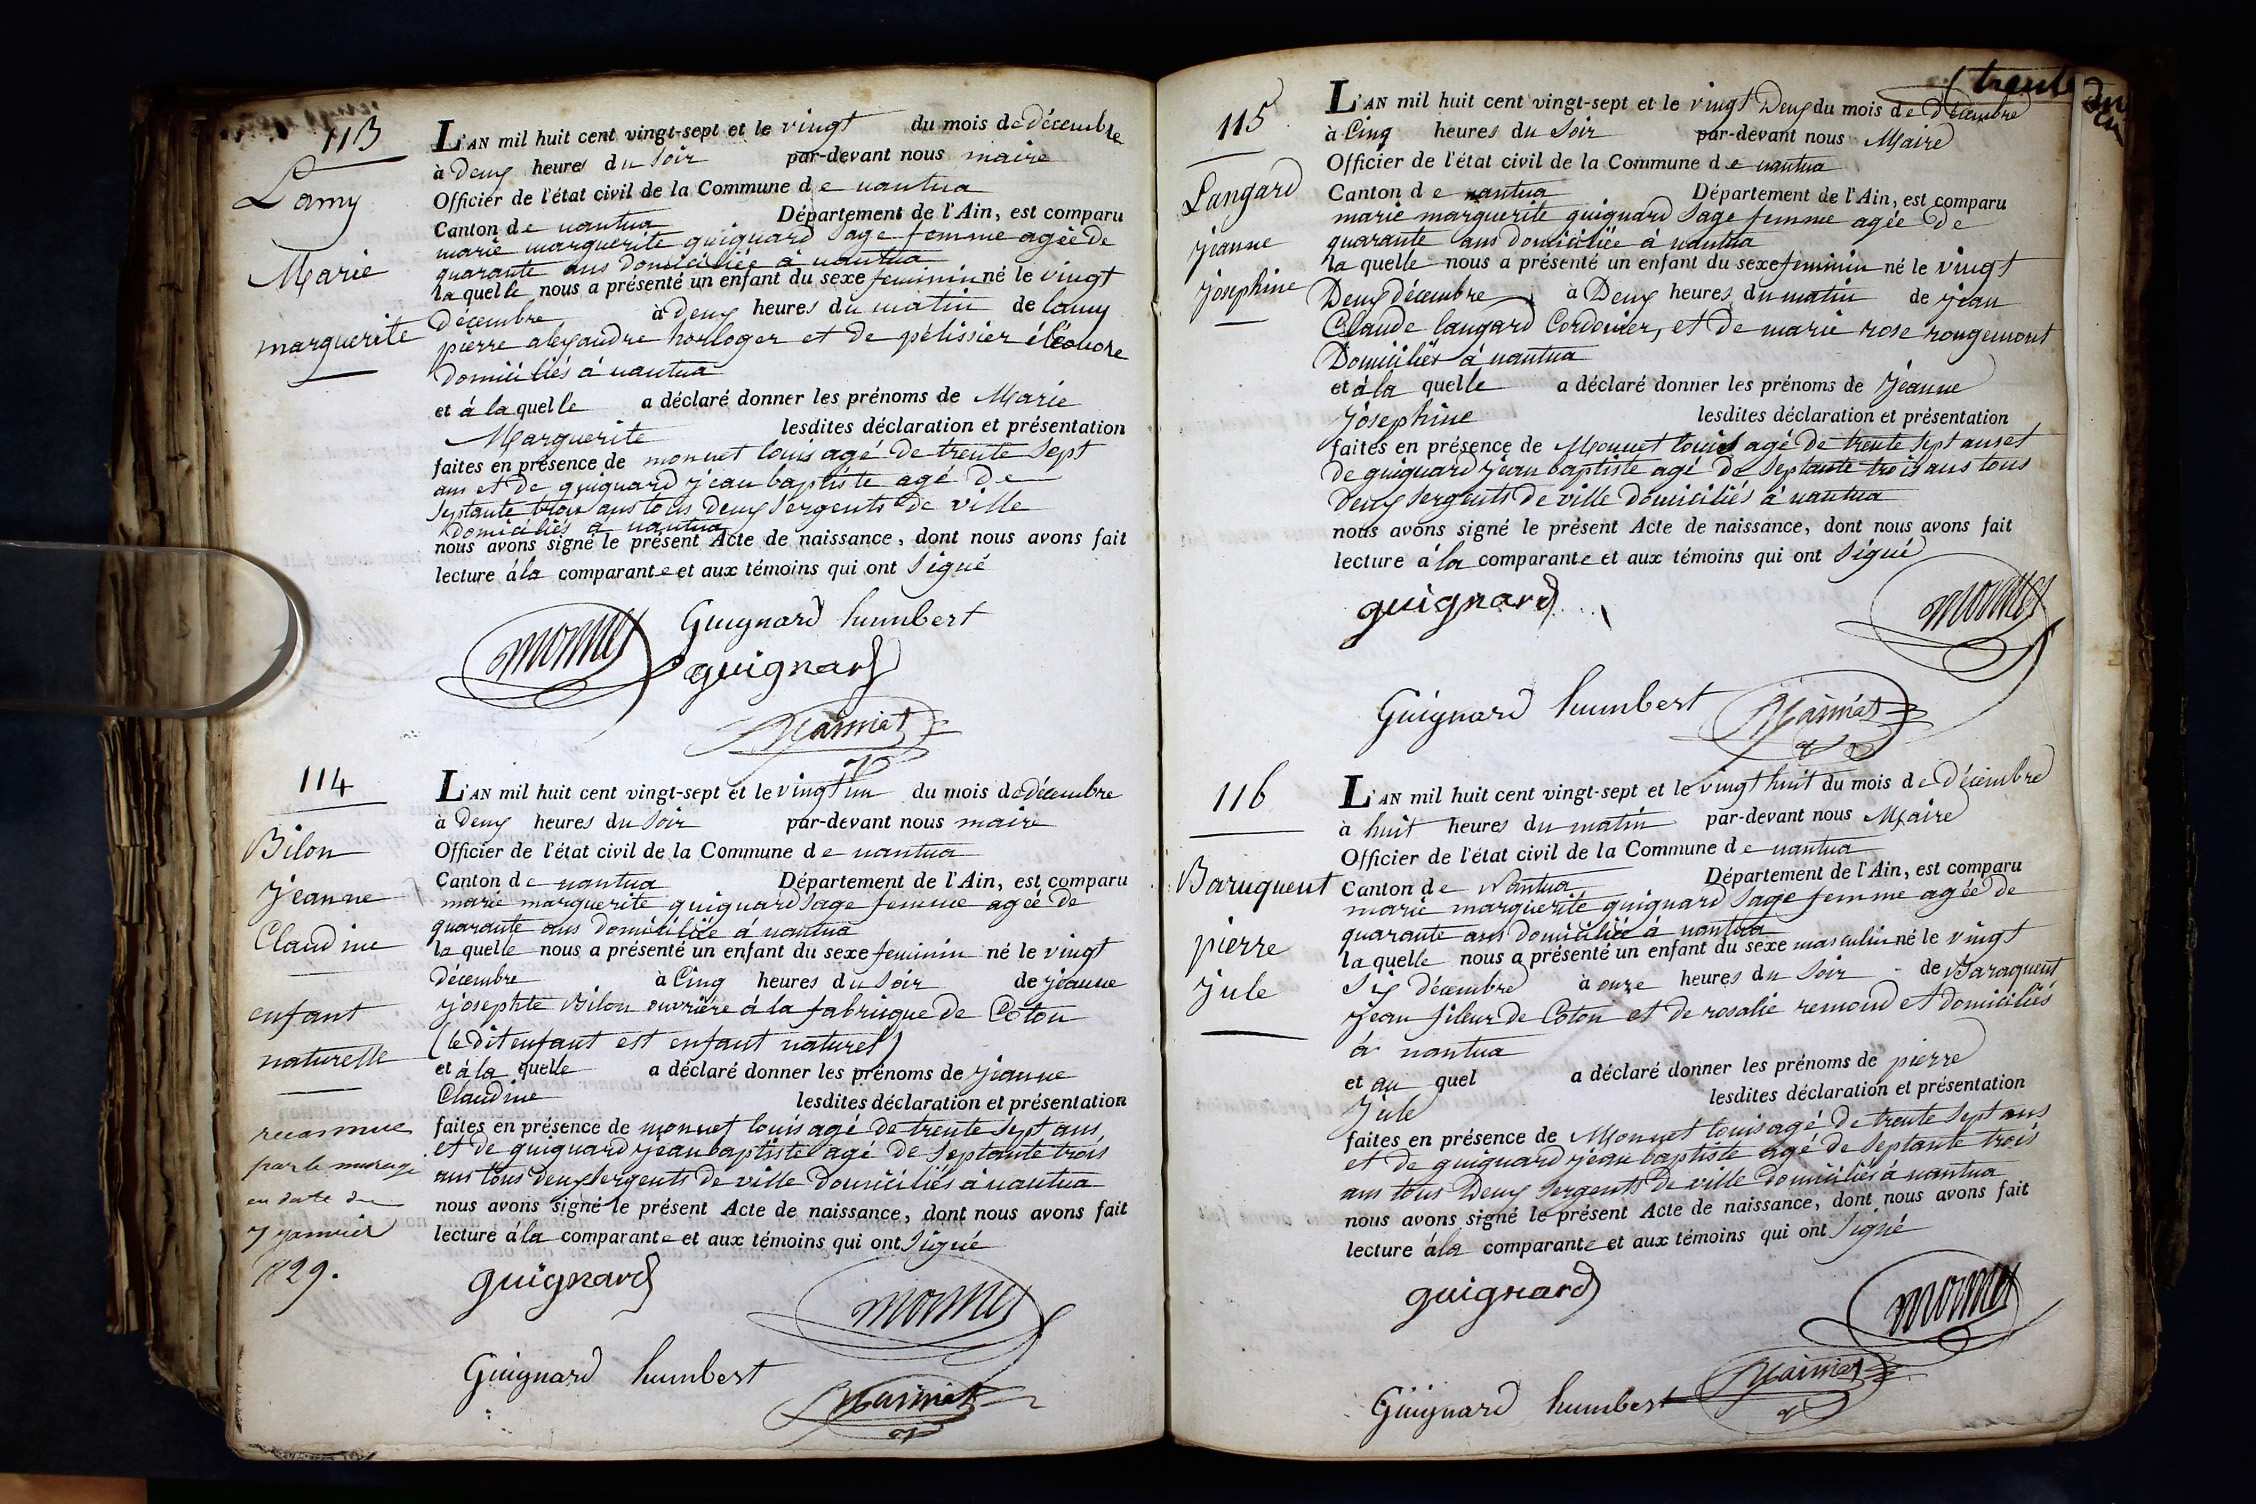 113
Lamy
Marie
marguerite
L'AN mil huit cent vingt-sept et le vingt du mois de décembre
à deux heures du soir par-devant nous maire
Officier de l'état civil de la Commune de nantua
Canton de nantua Département de l'Ain, est comparu
marie marguerite guignard sage femme agée de
quarante ans domiciliée à nantua
la quelle nous a présenté un enfant du sexe feminin né le vingt
décembre à deux heures du matin de lamy
pierre alexandre horloger et de pélissier éléonore
domiciliés à nantua
et à la quelle a déclaré donner les prénoms de Marie
Marguerite lesdites déclaration et présentation
faites en présence de monnet louis agé de trente sept
ans et de guignard jean baptiste agé de
septante trois ans tous deux sergents de ville
domiciliés à nantua
nous avons signé le présent Acte de naissance, dont nous avons fait
lecture à la comparante et aux témoins qui ont signé
monnet Guignard humbert
guignard
114
Bilon
jeanne
Claudine
enfant
naturelle
reconnue
par le mariage
en date du
7 janvier
1829.
L'AN mil huit cent vingt-sept et le vingt un du mois de décembre
à deux heures du soir par-devant nous maire
Officier de l'état civil de la Commune de nantua
Canton de nantua Département de l'Ain, est comparu
marie marguerite guignard sage femme agée de
quarante ans domiciliée à nantua
la quelle nous a présenté un enfant du sexe feminin né le vingt
décembre à Cinq heures du soir de jeanne
josephte Bilon ouvrière à la fabrique de Coton
(le dit enfant est enfant naturel)
et à la quelle a déclaré donner les prénoms de jeanne
Claudine lesdites déclaration et présentation
faites en présence de monnet louis agé de trente sept ans
et de guignard jean baptiste agé de septante trois
ans tous deux sergents de ville domiciliés à nantua
nous avons signé le présent Acte de naissance, dont nous avons fait
lecture à la comparante et aux témoins qui ont signé
guignard monnet
Guignard humbert
trente
115
Langard
jeanne
josephine
L'AN mil huit cent vingt-sept et le vingt Deux du mois de Décembre
à Cinq heures du soir par-devant nous Maire
Officier de l'état civil de la Commune de nantua
Canton de nantua Département de l'Ain, est comparu
marie marguerite guignard sage femme agée de
quarante ans domiciliée à nantua
la quelle nous a présenté un enfant du sexe feminin né le vingt
Deux décembre à Deux heures du matin de jean
Claude langard Cordonier, et de marie rose rougemont
Domiciliés à nantua
et à la quelle a déclaré donner les prénoms de jeanne
josephine lesdites déclaration et présentation
faites en présence de Monnet louis agé de trente sept ans et
de guignard jean baptiste agé de septante trois ans tous
deux sergents de ville domiciliés à nantua
nous avons signé le présent Acte de naissance, dont nous avons fait
lecture à la comparante et aux témoins qui ont signé
guignard monnet
Guignard humbert
116
Baruquent
pierre
jule
L'AN mil huit cent vingt-sept et le vingt huit du mois de Décembre
à huit heures du matin par-devant nous Maire
Officier de l'état civil de la Commune de nantua
Canton de Nantua Département de l'Ain, est comparu
marie marguerite guignard sage femme agée de
quarante ans domiciliée à nantua
la quelle nous a présenté un enfant du sexe masculin né le vingt
Six décembre à onze heures du soir de Baraquent
jean fileur de Coton et de rosalie remond et domiciliés
à nantua
et au quel a déclaré donner les prénoms de pierre
jule lesdites déclaration et présentation
faites en présence de Monnet louis agé de trente sept ans
et de guignard jean baptiste agé de septante trois
ans tous Deux sergents de ville domiciliés à nantua
nous avons signé le présent Acte de naissance, dont nous avons fait
lecture à la comparante et aux témoins qui ont signé
guignard monnet
Guignard humbert